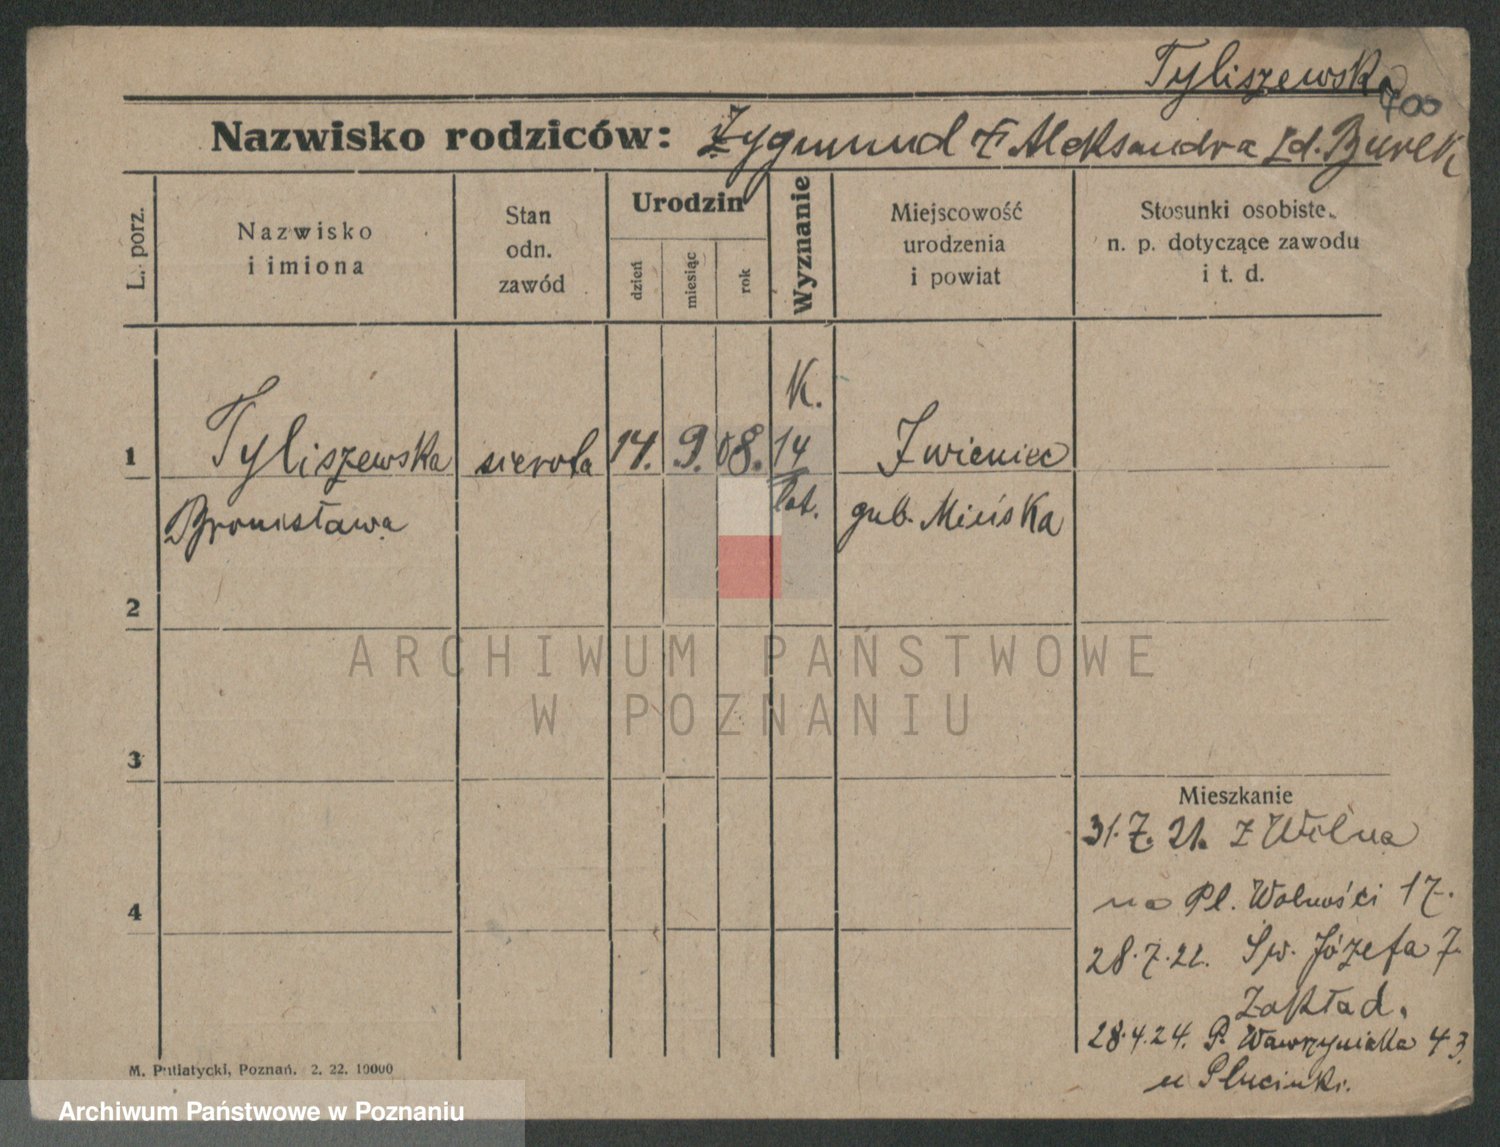 Tyliszewska
400
Nazwisko rodziców: Zygmund i Aleksandra zd. Burek
L. porz.
Nazwisko
i imiona
Stan
odn.
zawód
Urodzin
dzień
miesiąc
rok
Wyznanie
Miejscowość
urodzenia
i powiat
Stosunki osobiste
n. p. dotyczące zawodu
i t. d.
K.
1 Tyliszewska sierota 14. 9. 08. 14 Zwieniec
Bronisława lat. gub. Mińska
2
3
4
ARCHIWUM PAŃSTWOWE
W POZNANIU
Mieszkanie
31.7.21. z Wilna
na Pl. Wolności 17.
28.7.22. Św. Józefa 7.
Zakład.
28.4.24. P. Wawrzyniaka 43.
u Plucinki.
M. Putiatycki, Poznań. 2. 22. 10000
Archiwum Państwowe w Poznaniu